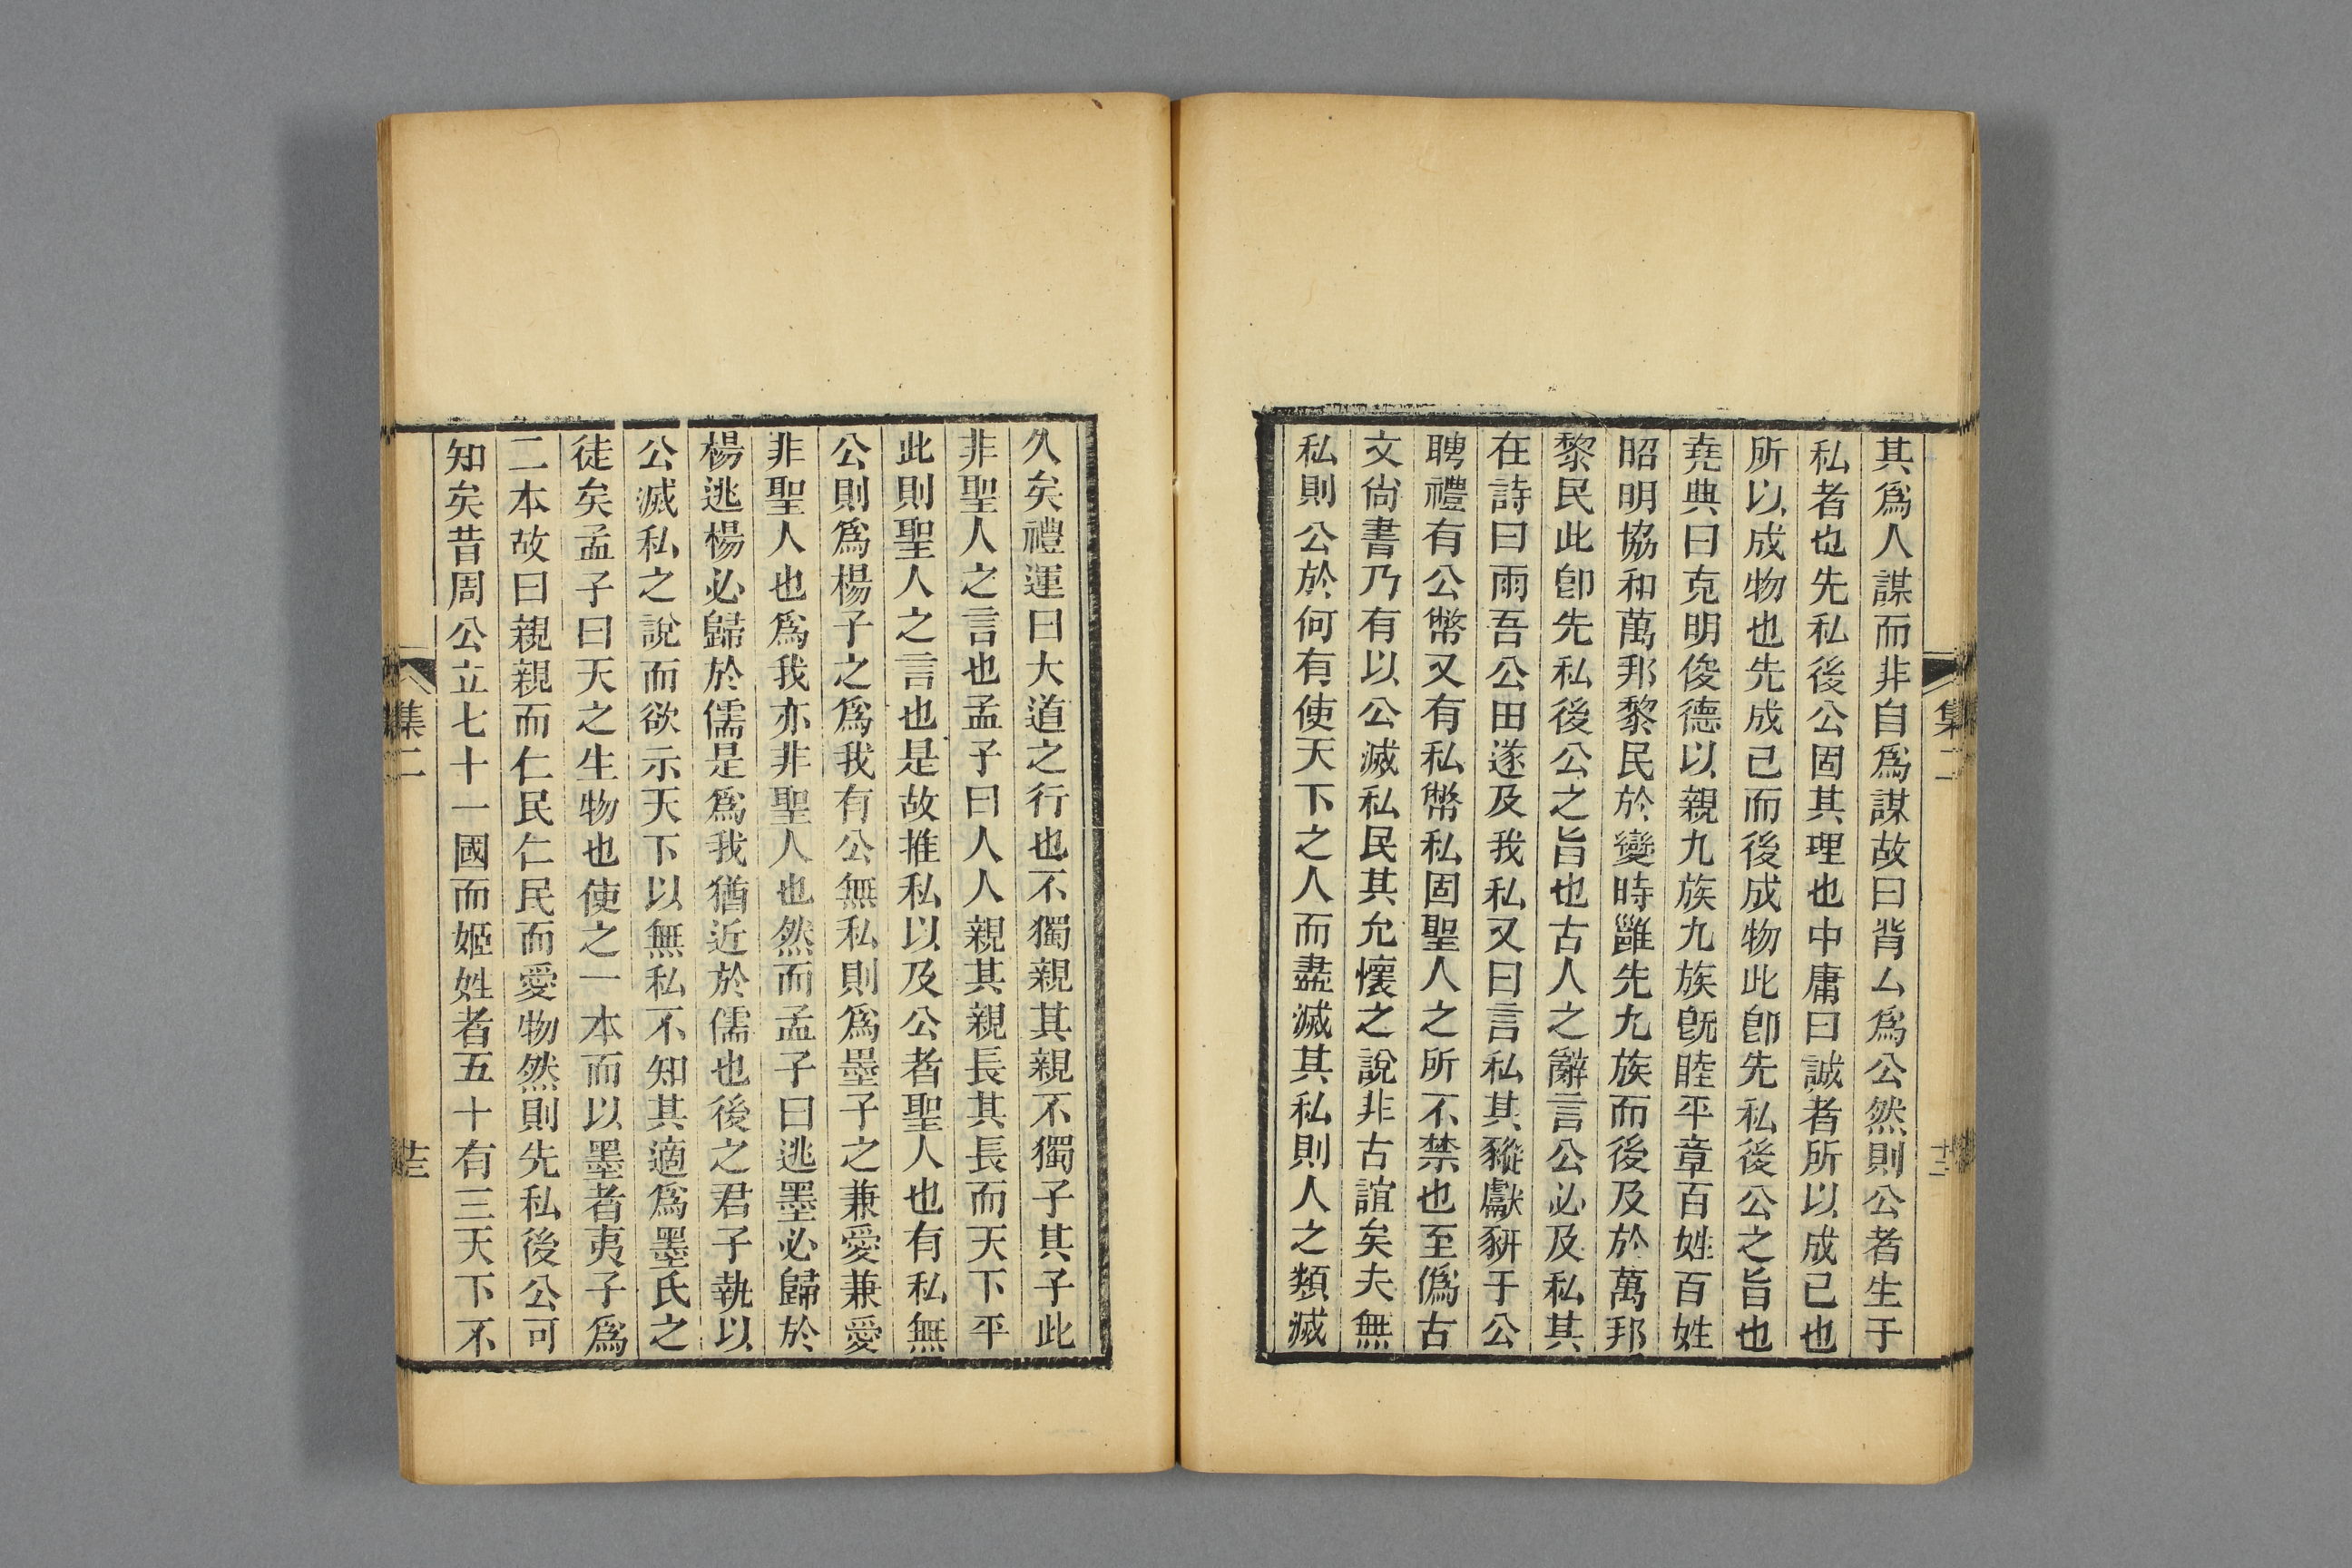 集二
十二
其爲人謀而非自爲謀故曰背厶爲公然則公者生于
私者也先私後公固其理也中庸曰誠者所以成己也
所以成物也先成己而後成物此卽先私後公之旨也
堯典曰克明俊德以親九族九族旣睦平章百姓百姓
昭明協和萬邦黎民於變時雝先九族而後及於萬邦
黎民此卽先私後公之旨也古人之辭言公必及私其
在詩曰雨吾公田遂及我私又曰言私其豵獻豜于公
聘禮有公幣又有私幣私固聖人之所不禁也至僞古
文尙書乃有以公滅私民其允懷之說非古誼矣夫無
私則公於何有使天下之人而盡滅其私則人之類滅
久矣禮運曰大道之行也不獨親其親不獨子其子此
非聖人之言也孟子曰人人親其親長其長而天下平
此則聖人之言也是故推私以及公者聖人也有私無
公則爲楊子之爲我有公無私則爲墨子之兼愛兼愛
非聖人也爲我亦非聖人也然而孟子曰逃墨必歸於
楊逃楊必歸於儒是爲我猶近於儒也後之君子執以
公滅私之說而欲示天下以無私不知其適爲墨氏之
徒矣孟子曰天之生物也使之一本而以墨者夷子爲
二本故曰親親而仁民仁民而愛物然則先私後公可
知矣昔周公立七十一國而姬姓者五十有三天下不
集二